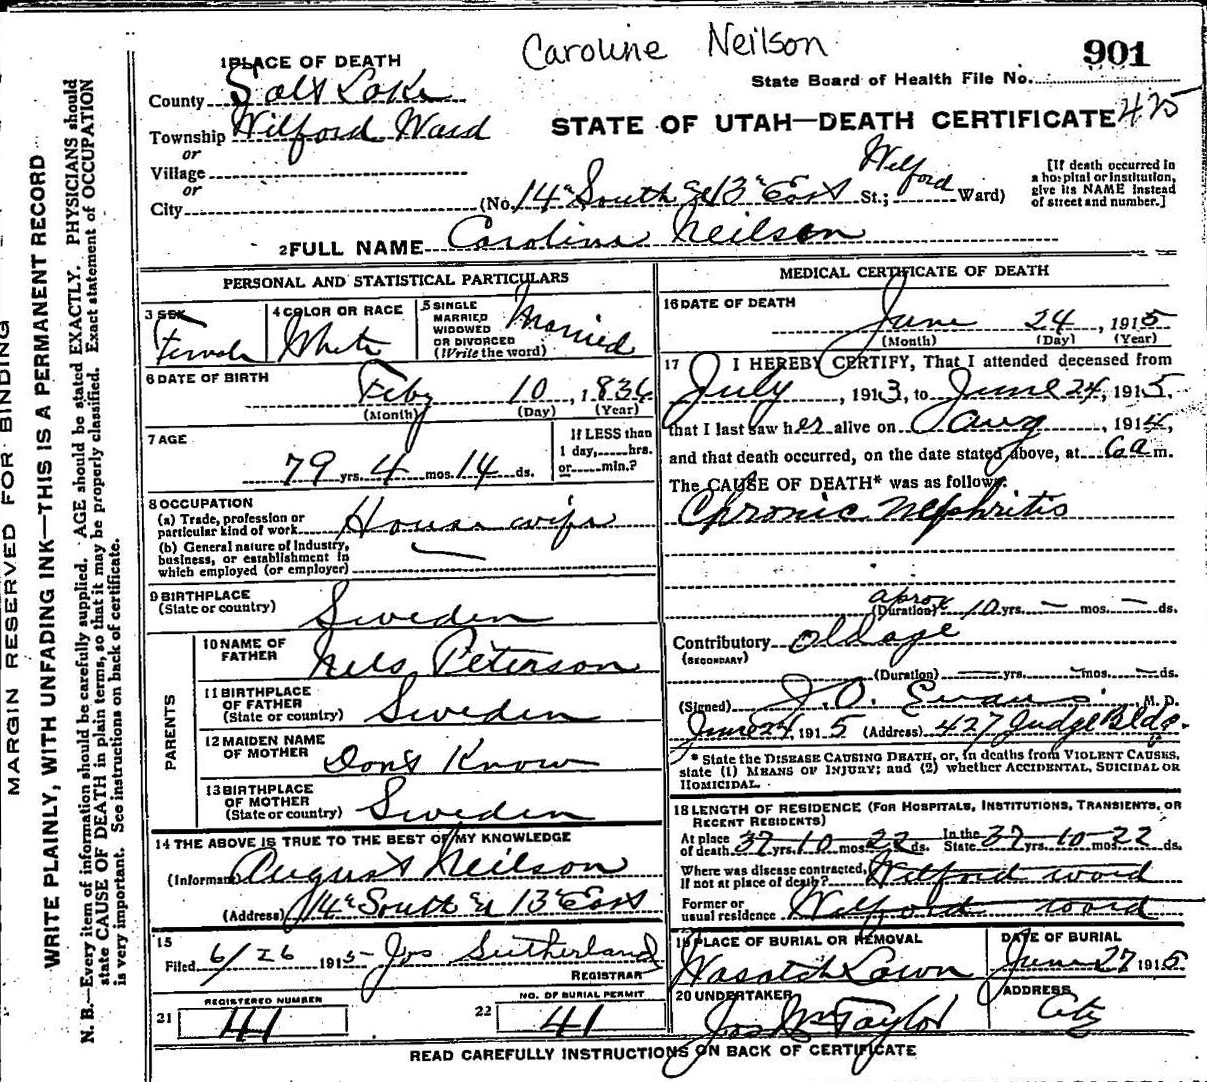 Caroline Neilson
901
State Board of Health File No.
STATE OF UTAH—DEATH CERTIFICATE 425
1 PLACE OF DEATH
County Salt Lake
Township Wilford Ward
or
Village
or
City (No. 14" South & 13" East St.; Wilford Ward)
[If death occurred in
a hospital or institution,
give its NAME instead
of street and number.]
2 FULL NAME Caroline Neilson
PERSONAL AND STATISTICAL PARTICULARS
3 SEX
Female
4 COLOR OR RACE
White
5 SINGLE
MARRIED
WIDOWED
OR DIVORCED
(Write the word)
Married
6 DATE OF BIRTH
Feby 10, 1836
(Month) (Day) (Year)
7 AGE
79 yrs. 4 mos. 14 ds.
If LESS than
1 day, hrs.
or min.?
8 OCCUPATION
(a) Trade, profession or
particular kind of work House wife
(b) General nature of Industry,
business, or establishment in
which employed (or employer)
9 BIRTHPLACE
(State or country) Sweden
PARENTS
10 NAME OF
FATHER Nels Peterson
11 BIRTHPLACE
OF FATHER
(State or country) Sweden
12 MAIDEN NAME
OF MOTHER Dont Know
13 BIRTHPLACE
OF MOTHER
(State or country) Sweden
14 THE ABOVE IS TRUE TO THE BEST OF MY KNOWLEDGE
(Informant) August Neilson
(Address) 14" South & 13" East
15
Filed 6/26 1915 Jos Sutherland
REGISTRAR
REGISTERED NUMBER
21 41
NO. OF BURIAL PERMIT
22 41
MEDICAL CERTIFICATE OF DEATH
16 DATE OF DEATH
June 24, 1915
(Month) (Day) (Year)
17 I HEREBY CERTIFY, That I attended deceased from
July, 1913, to June 24, 1915.
that I last saw her alive on Aug, 1914,
and that death occurred, on the date stated above, at 6 a m.
The CAUSE OF DEATH* was as follows:
Chronic Nephritis
aprox
(Duration) 10 yrs. — mos. — ds.
Contributory old age
(SECONDARY)
(Duration) — yrs. — mos. — ds.
(Signed) J. O. Evans. M. D.
June 24, 1915 (Address) 427 Judge Bldg.
* State the DISEASE CAUSING DEATH, or, in deaths from VIOLENT CAUSES,
state (1) MEANS OF INJURY; and (2) whether ACCIDENTAL, SUICIDAL OR
HOMICIDAL.
18 LENGTH OF RESIDENCE (FOR HOSPITALS, INSTITUTIONS, TRANSIENTS, OR
RECENT RESIDENTS)
At place
of death 37 yrs. 10 mos. 22 ds. In the
State 37 yrs. 10 mos. 22 ds.
Where was disease contracted,
If not at place of death? Wilford ward
Former or
usual residence Wilford ward
19 PLACE OF BURIAL OR REMOVAL
Wasatch Lawn
DATE OF BURIAL
June 27 1915
20 UNDERTAKER
Jos Wm Taylor
ADDRESS
City
READ CAREFULLY INSTRUCTIONS ON BACK OF CERTIFICATE
MARGIN RESERVED FOR BINDING
WRITE PLAINLY, WITH UNFADING INK—THIS IS A PERMANENT RECORD
N. B.—Every item of information should be carefully supplied. AGE should be stated EXACTLY. PHYSICIANS should
state CAUSE OF DEATH in plain terms, so that it may be properly classified. Exact statement of OCCUPATION
is very important. See instructions on back of certificate.